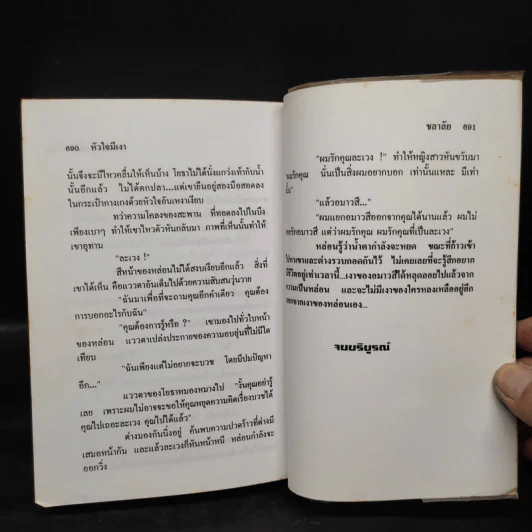 690 หัวใจมีเงา
นั้นจึงจะมีไหวคลื่นให้เห็นบ้าง โยธาไม่ได้นั่งแกว่งเท้ากับน้ำ
นั้นอีกแล้ว ไม่ได้ตกปลา...แต่เขายืนอยู่สองมือสอดลง
ในกระเป๋ากางเกงด้วยหัวใจอันเหงาเงียบ
ทว่าความโคลงของสะพาน ที่ทอดลงไปในบึง
เพียงเบาๆ ทำให้เขาไหวตัวหันกลับมา ภาพที่เห็นนั้นทำให้
เขาอุทาน
"ละเวง !"
สีหน้าของหล่อนไม่ได้สงบเงียบอีกแล้ว สิ่งที่
เขาได้เห็น คือแววตาอันเต็มไปด้วยความสับสนวุ่นวาย
"ฉันมาเพื่อที่จะถามคุณอีกคำเดียว คุณต้อง
การบอกอะไรกับฉัน"
"คุณต้องการรู้หรือ ?" เขามองไปทั่วใบหน้า
ของหล่อน แววตาเปล่งประกายของความอบอุ่นที่ไม่มีใด
เทียบ
"ฉันเพียงแต่ไม่อยากจะบวช โดยมีปมปัญหา
อีก..."
แววตาของโยธาหมองหมางไป "งั้นคุณอย่ารู้
เลย เพราะผมไม่อาจจะขอให้คุณหยุดความคิดเรื่องบวชได้
คุณไปเถอะละเวง คุณไปได้แล้ว"
ต่างมองกันนิ่งอยู่ ค้นพบความปวดร้าวที่ต่างมี
เสมอหน้ากัน และแล้วละเวงก็หันหน้าหนี หล่อนกำลังจะ
ออกวิ่ง
ชลาลัย 691
"ผมรักคุณละเวง !" ทำให้หญิงสาวหันขวับมา
รักคุณ นั่นเป็นสิ่งผมอยากบอก เท่านั้นแหละ มีเท่า
"แล้วอมาวสี..."
"ผมแยกอมาวสีออกจากคุณได้นานแล้ว ผมไม่
รักอมาวสี แต่ว่าผมรักคุณ ผมรักคุณที่เป็นละเวง"
หล่อนรู้ว่าน้ำตากำลังจะหยด ขณะที่ก้าวเข้า
เขาและต่างรวบกอดกันไว้ ไม่เคยเลยที่จะรู้สึกอยาก
ชีวิตอยู่เท่าเวลานี้...เงาของอมาวสีได้หลุดลอยไปแล้วจาก
ความเป็นหล่อน และจะไม่มีเงาของใครหลงเหลืออยู่อีก
จากเงาของหล่อนเอง...
จบบริบูรณ์